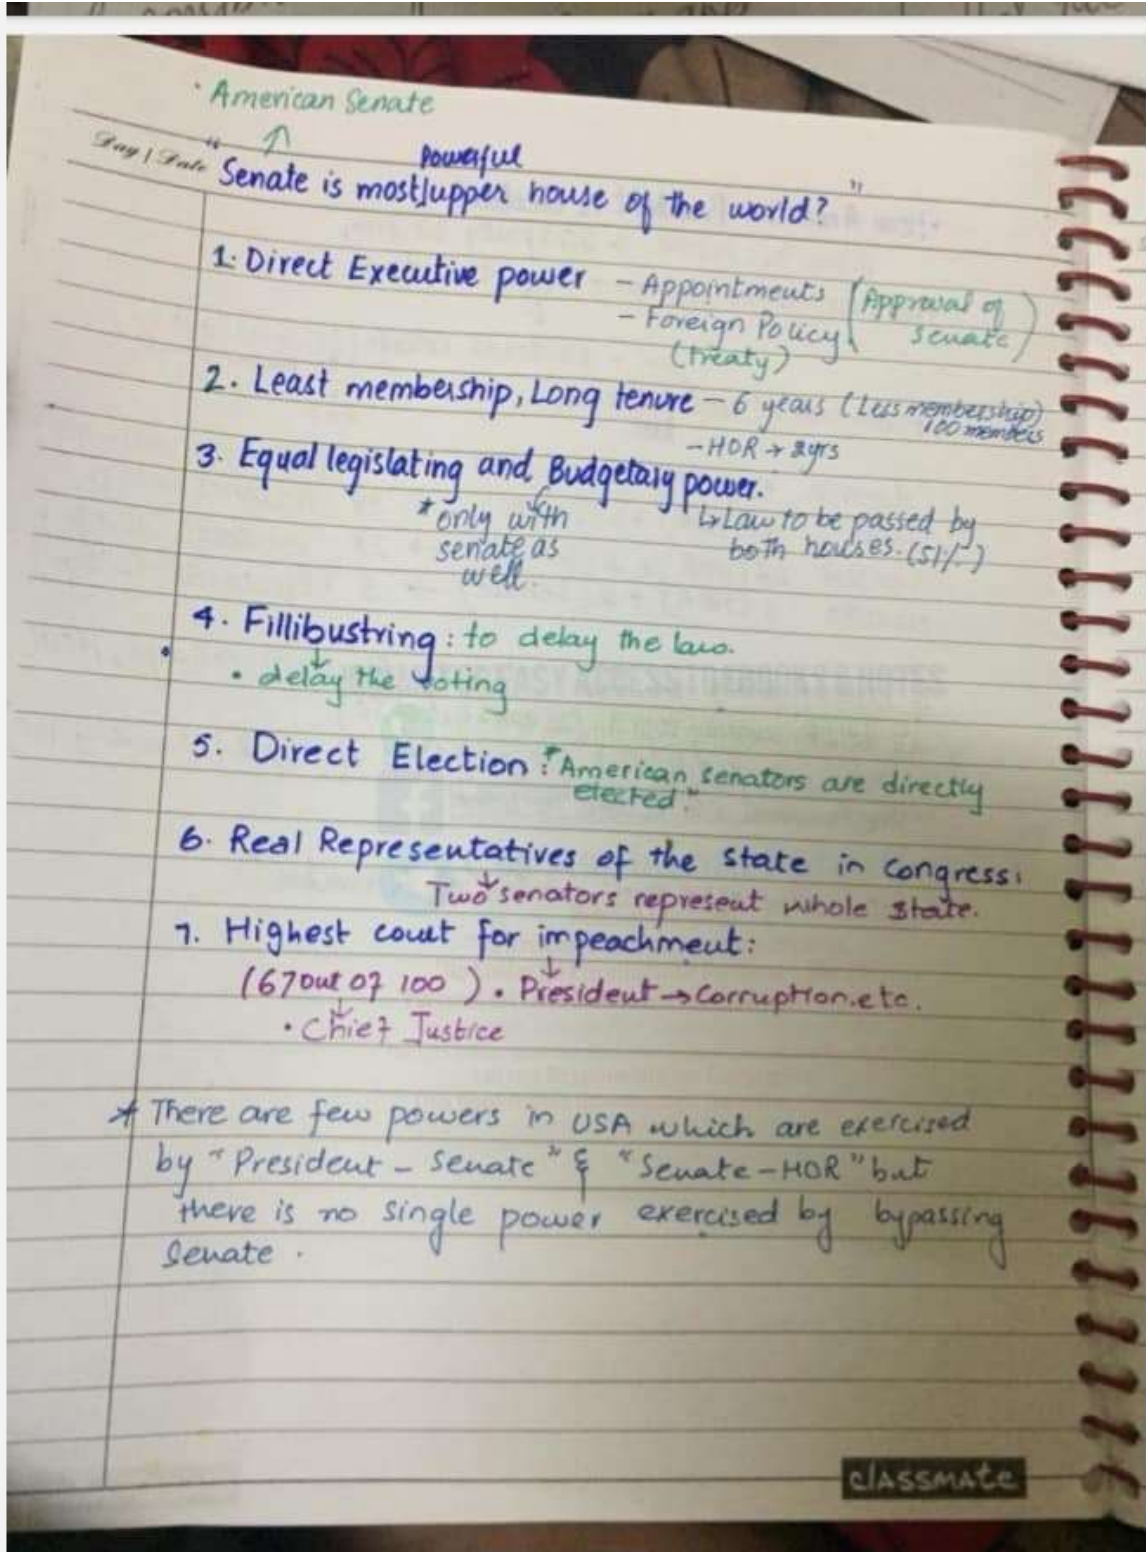 · American Senate
Day / Date
Powerful
"Senate is most/upper house of the world?"
1. Direct Executive power - Appointments (Approval of
- Foreign Policy Senate)
(treaty)
2. Least membership, Long tenure - 6 years (Less membership)
100 members
- HOR → 2yrs
3. Equal legislating and Budgetary power.
* only with ↳ Law to be passed by
senate as both houses. (51%)
well.
4. Fillibustring : to delay the law.
• delay the voting
5. Direct Election : "American senators are directly
elected."
6. Real Representatives of the state in congress:
Two senators represent whole state.
7. Highest court for impeachment:
(67 out of 100). • President → Corruption.etc.
• Chief Justice
* There are few powers in USA which are exercised
by "President - Senate" & "Senate - HOR" but
there is no single power exercised by bypassing
Senate.
classmate